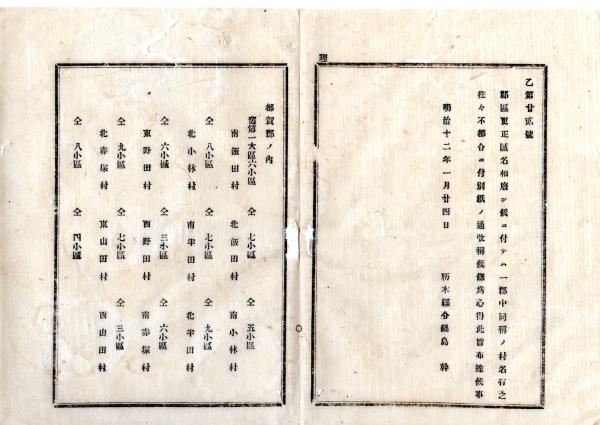 理
乙第廿貳號
郡區更正區名相廢シ候ニ付テハ一郡中同稱ノ村名有之
往々不都合ニ付別紙ノ通改稱候條爲心得此旨布達候事
明治十二年一月廿四日
栃木縣令鍋島 幹
都賀郡ノ內
舊第一大區六小區
仝 七小區
仝 五小區
南飯田村
北飯田村
南小林村
仝 八小區
仝 七小區
仝 九小區
北小林村
南半田村
北半田村
仝 六小區
仝 三小區
仝 六小區
東野田村
西野田村
南赤塚村
仝 九小區
仝 七小區
仝 三小區
北赤塚村
東山田村
西山田村
仝 八小區
仝 四小區